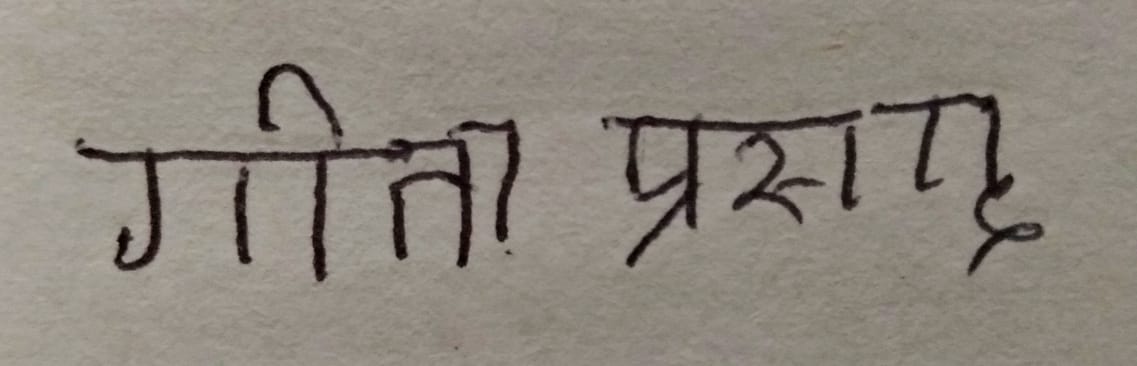 गीता प्रसाद